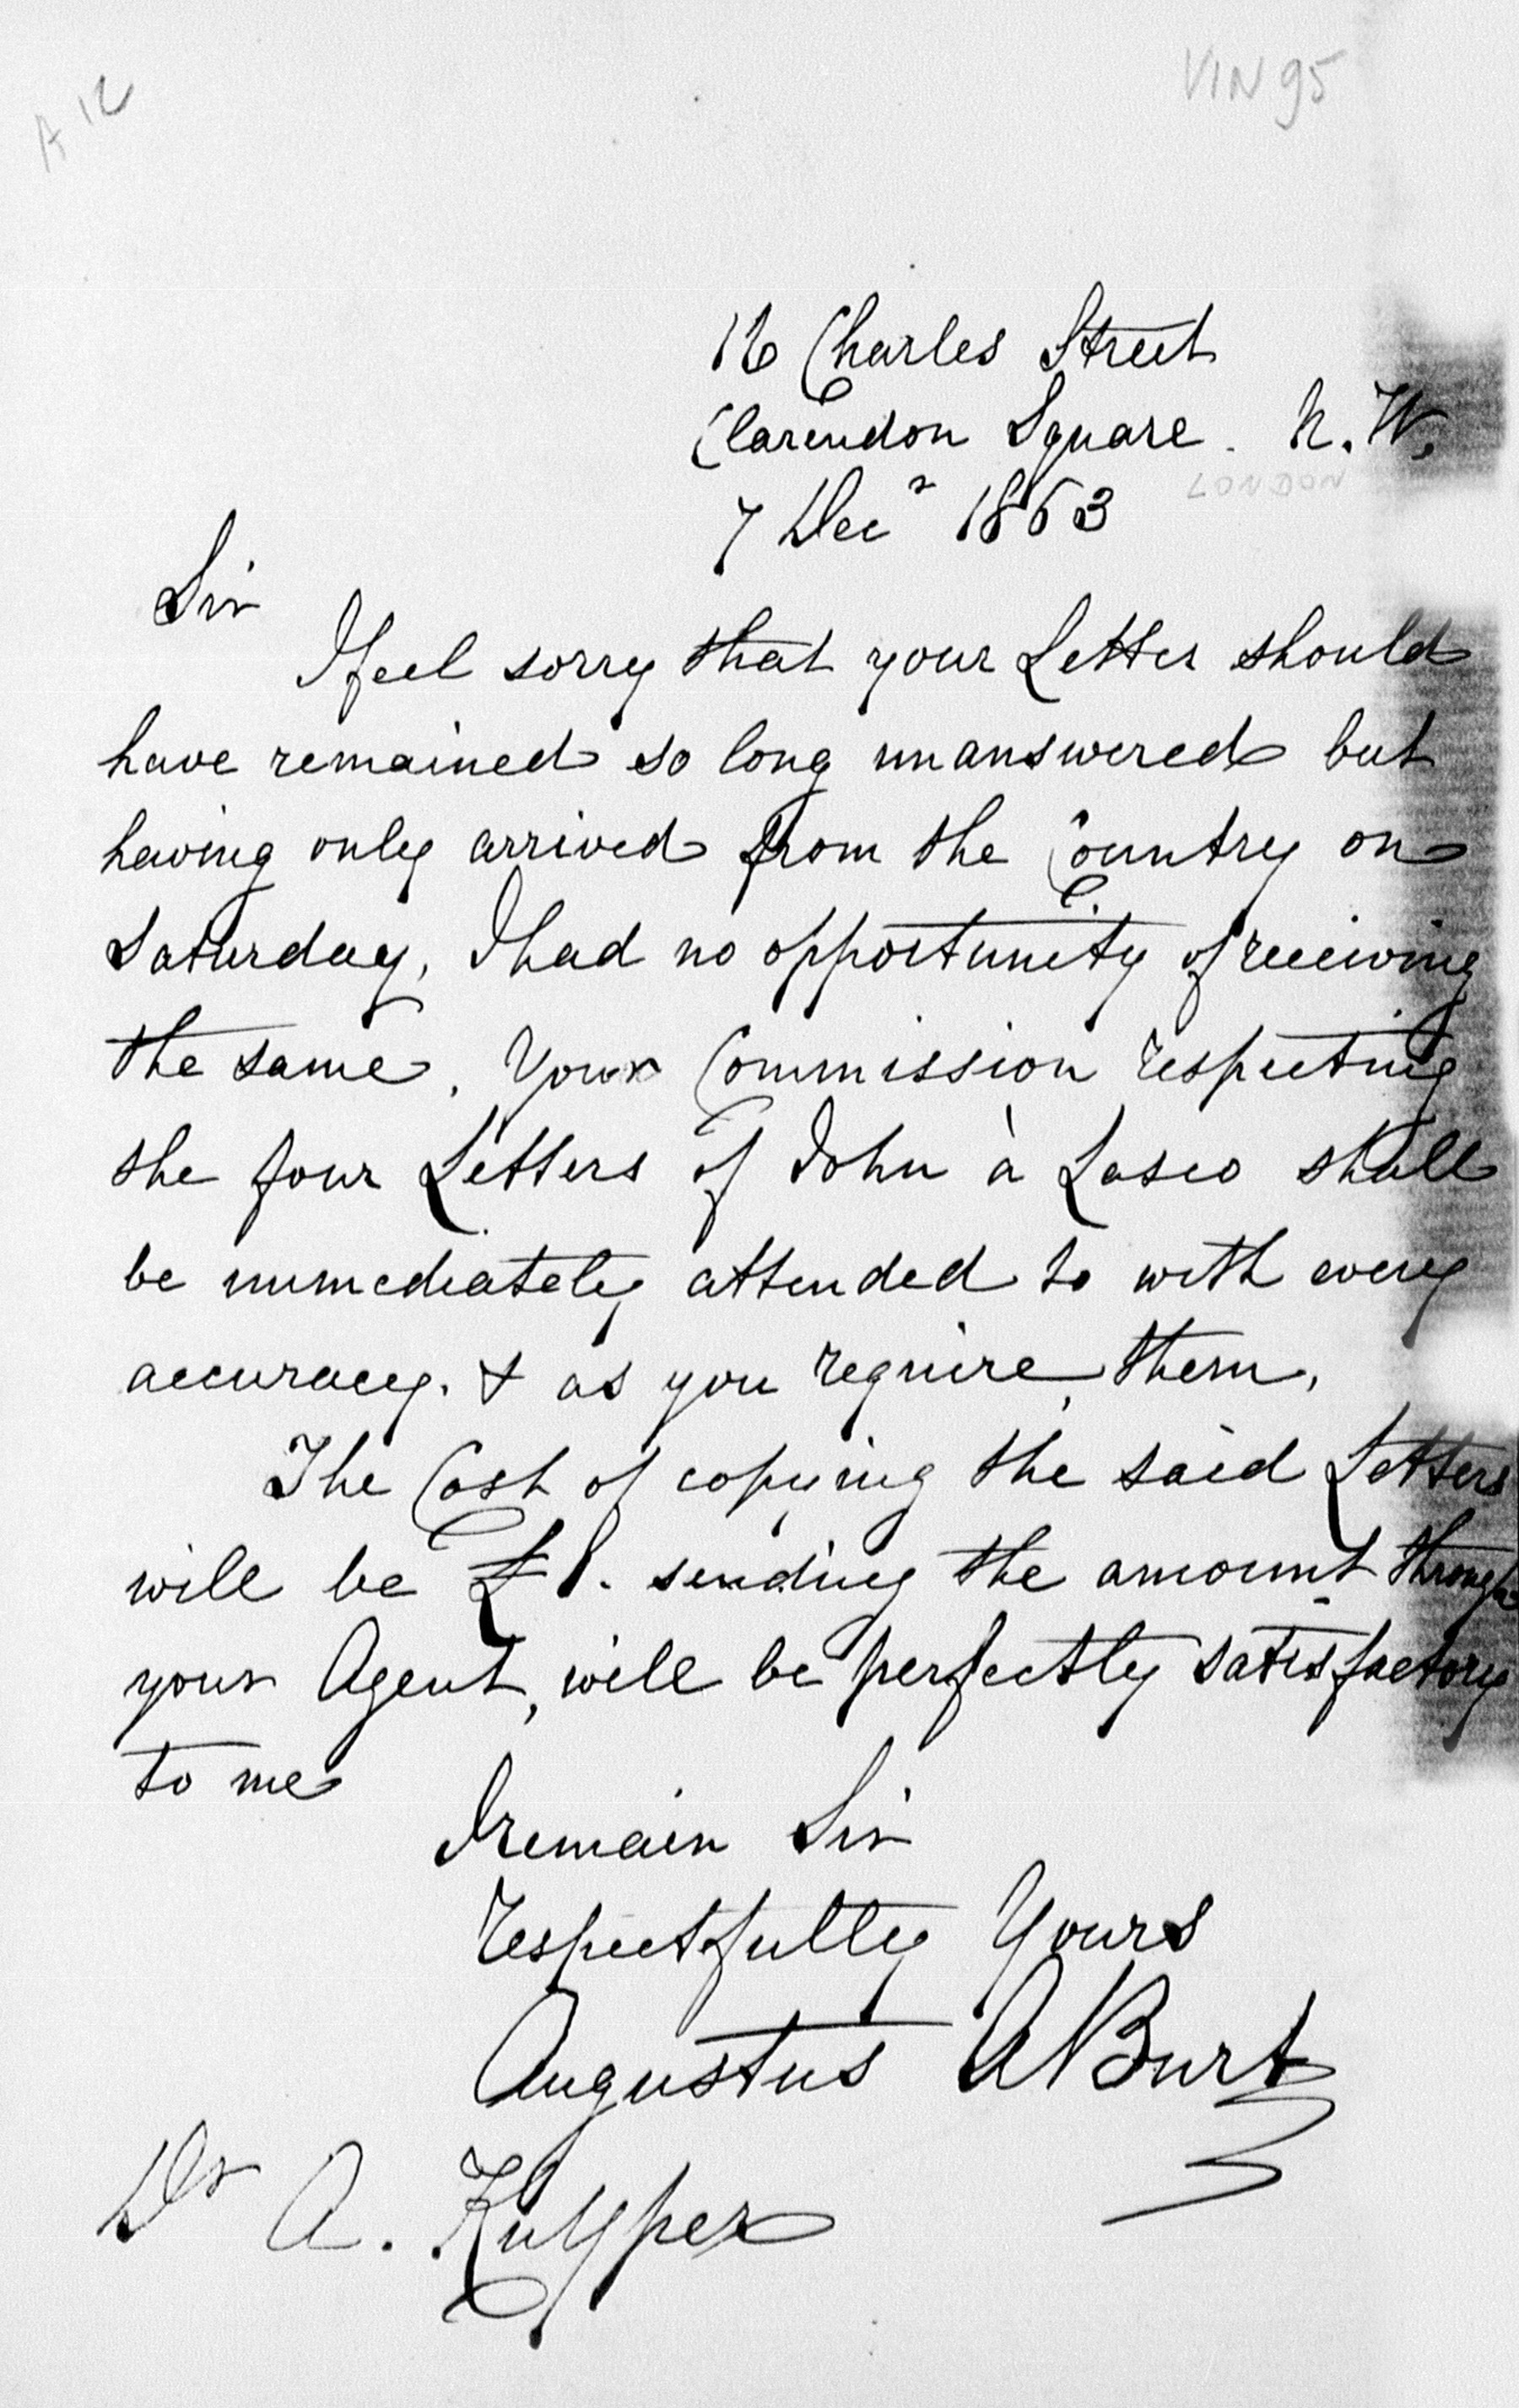 A 12
VIN 95
16 Charles Street
Clarendon Square. N.W.
LONDON
7 Decr 1863
Sir
I feel sorry that your Letter should
have remained so long unanswered but
having only arrived from the Country on
Saturday, I had no opportunity of receiving
the same. Your Commission respecting
the four Letters of John à Lasco shall
be immediately attended to with every
accuracy. & as you require them.
The Cost of copying the said Letters
will be £1. sending the amount through
your Agent, will be perfectly satisfactory
to me
I remain Sir
respectfully Yours
Augustus A Burt
Dr A. Kuyper